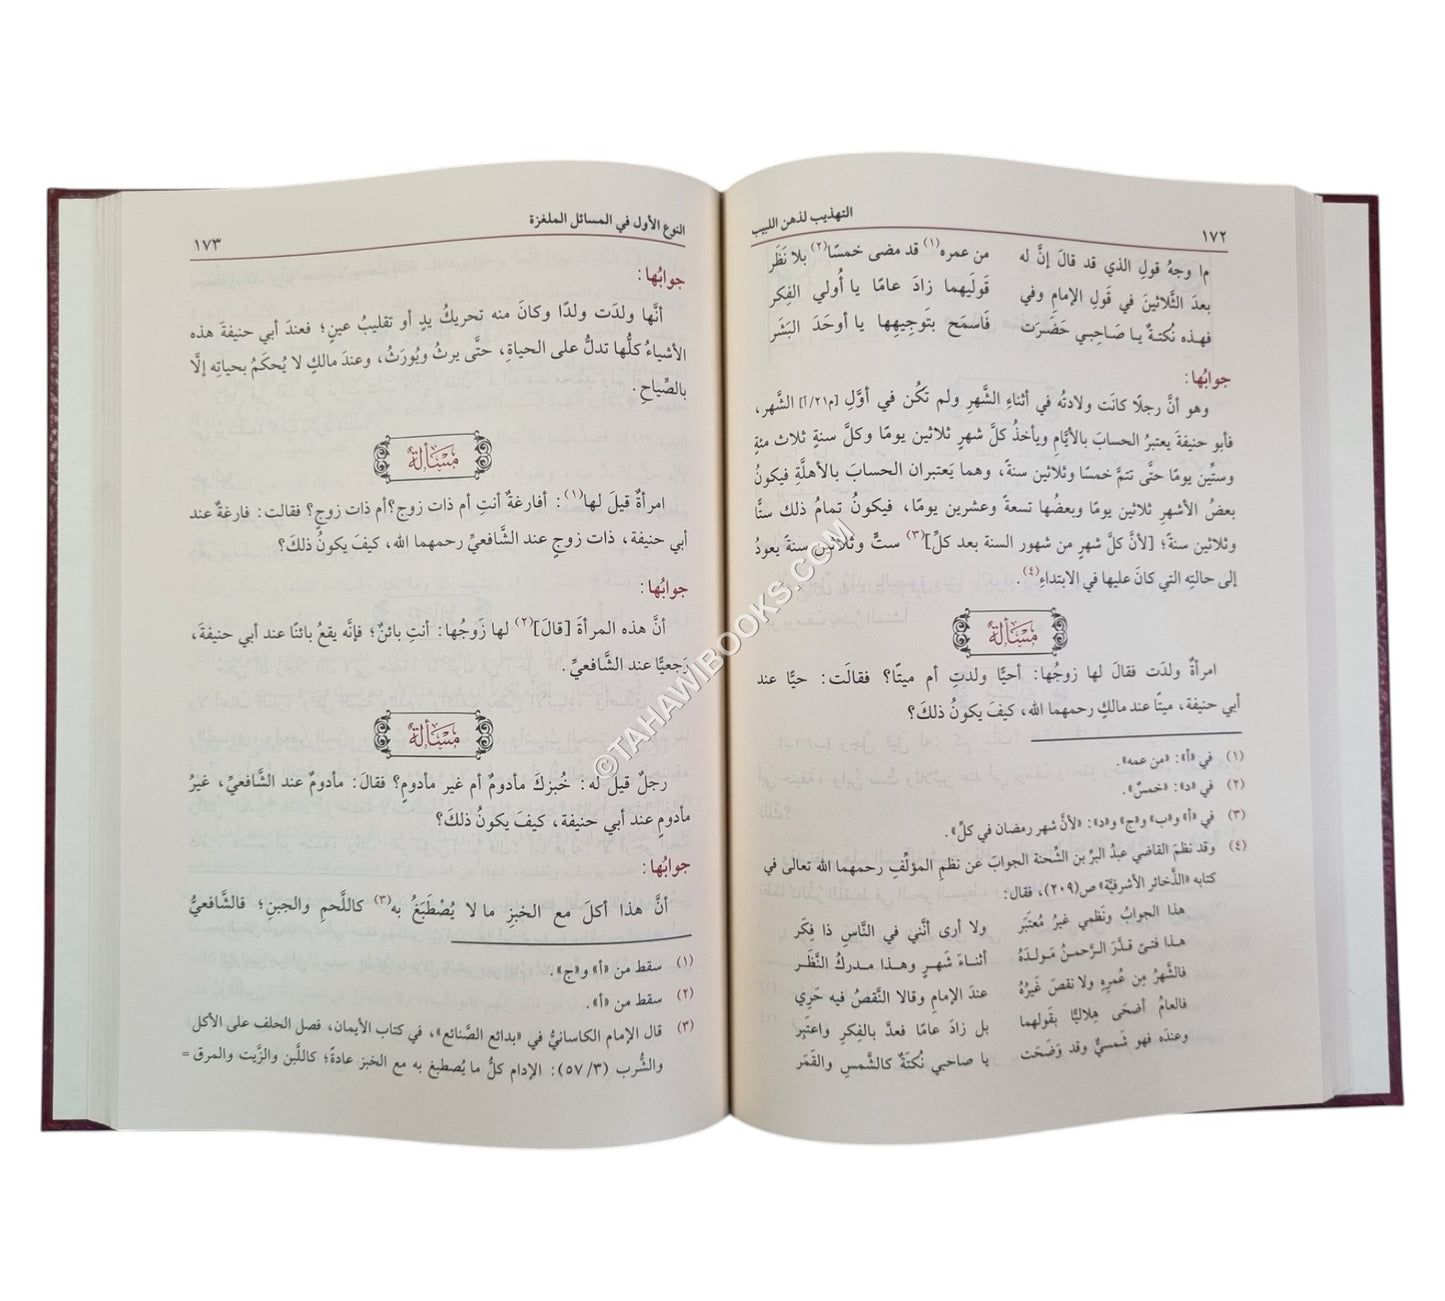 التهذيب لذهن اللبيب
١٧٢
م‍ا وجهُ قولِ الذي قد قالَ إنَّ له من عمره(١) قد مضى خمسًا(٢) بلا نَظَر
بعدَ الثَّلاثينَ في قَولِ الإمامِ وفي قَوليهما زادَ عامًا يا أُولي الفِكر
فهذه نُكتةٌ يا صَاحِبي حَضَرَت فَاسمَح بتَوجِيهِها يا أوحَدَ البَشَر
جوابُها:
وهو أنَّ رجلًا كانَت ولادتُه في أثناءِ الشَّهرِ ولم تَكُن في أوَّلِ [م٢١/أ] الشَّهر،
فأبو حنيفةَ يعتبرُ الحسابَ بالأيَّامِ ويأخذُ كلَّ شهرٍ ثلاثين يومًا وكلَّ سنةٍ ثلاث مئةٍ
وستِّين يومًا حتَّى تتمَّ خمسًا وثلاثين سنةً، وهما يَعتبران الحسابَ بالأهلَّةِ فيكونُ
بعضُ الأشهرِ ثلاثين يومًا وبعضُها تسعةً وعشرين يومًا، فيكونُ تمامُ ذلك ستًّا
وثلاثين سنةً؛ [لأنَّ كلَّ شهرٍ من شهور السنة بعد كلِّ](٣) ستٍّ وثلاثين سنةً يعودُ
إلى حالتِه التي كانَ عليها في الابتداءِ(٤).
مَسْأَلةٌ
امرأةٌ ولدَت فقالَ لها زوجُها: أحيًّا ولدتِ أم ميتًا؟ فقالَت: حيًّا عند
أبي حنيفة، ميتًا عند مالكٍ رحمهما الله، كيفَ يكونُ ذلكَ؟
(١) في «أ»: «من عمه».
(٢) في «د»: «خمسٌ».
(٣) في «أ» و«ب» و«ج» و«د»: «لأنَّ شهر رمضان في كلِّ».
(٤) وقد نظمَ القاضي عبدُ البرِّ بن الشِّحنة الجوابَ عن نظمِ المؤلِّفِ رحمهما الله تعالى في
كتابه «الذَّخائر الأشرفيَّة» ص(٢٠٩)، فقال:
هذا الجوابُ ونَظمي غيرُ مُعتَبَر ولا أرى أنَّني في النَّاسِ ذا فِكَر
هـذا فتـىً قـدَّرَ الـرَّحمنُ مَـولـدَهُ أثنـاءَ شَهـرٍ وهـذا مـدركُ النَّظَـر
فالشَّهرُ مِن عُمرِهِ ولا نقصَ غَيرُهُ عندَ الإمامِ وقالا النَّقصُ فيه حَرِي
فالعامُ أضحَى هِلاليًّا بقَولهما بل زادَ عامًا فعدَّ بالفِكرِ واعتَبِر
وعندَه فهو شَمسيٌّ وقد وَضَحَت يا صاحبي نُكتةٌ كالشَّمسِ والقَمَر
النوع الأول في المسائل الملغزة
١٧٣
جوابُها:
أنَّها ولدَت ولدًا وكانَ منه تحريكُ يدٍ أو تقليبُ عينٍ؛ فعندَ أبي حنيفةَ هذه
الأشياءُ كلُّها تدلُّ على الحياةِ، حتَّى يرثُ ويُورَثُ، وعندَ مالكٍ لا يُحكَمُ بحياتِه إلَّا
بالصِّياحِ.
مَسْأَلةٌ
امرأةٌ قيلَ لها(١): أفارغةٌ أنتِ أم ذات زوج؟أم ذات زوجٍ؟ فقالت: فارغةٌ عند
أبي حنيفة، ذات زوجٍ عند الشَّافعيِّ رحمهما الله، كيفَ يكونُ ذلكَ؟
جوابُها:
أنَّ هذه المرأةَ [قالَ](٢) لها زَوجُها: أنتِ بائنٌ؛ فإنَّه يقعُ بائنًا عند أبي حنيفةَ،
رَجعيًّا عند الشَّافعيِّ.
مَسْأَلةٌ
رجلٌ قيلَ له: خُبزكَ مأدومٌ أم غير مأدومٍ؟ فقالَ: مأدومٌ عند الشَّافعيِّ، غيرُ
مأدومٍ عند أبي حنيفة، كيفَ يكونُ ذلكَ؟
جوابُها:
أنَّ هذا أكلَ مع الخبزِ ما لا يُصْطَبَغُ به(٣) كاللَّحمِ والجبنِ؛ فالشَّافعيُّ
(١) سقط من «أ» و«ج».
(٢) سقط من «أ».
(٣) قال الإمام الكاسانيُّ في «بدائع الصَّنائع»، في كتاب الأيمان، فصل الحلف على الأكل
والشُّرب (٣/ ٥٧): الإدام كلُّ ما يُصطبغ به مع الخبز عادةً؛ كاللَّبن والزَّيت والمرق =
©TAHAWIBOOKS.COM